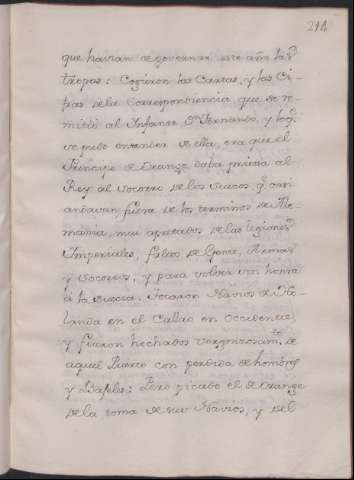 214
que havian de governar este año las
tropas: Cogieron las Cartas, y las Ci-
fras de la Correspondiencia que se re-
mitió al Infante Dn. Fernando, y lo q.
se pudo entender de ella, era que el
Principe de Orange daba priesa al
Rey al socorro de los Suecos, q.
andavan fuera de los terminos de Ale-
mania, mui apretados de las legiones
Imperiales, faltos de Gente, Armas
y socorros, y para volver con honra
á la Suecia. Tocaron Navios de Ho-
landa en el Callao en Occidente,
y fueron hechados vergonzosamte. de
aquel Puerto con perdida de hombres
y Baxeles: Pero picado el de Orange
de la toma de sus Navios, y del